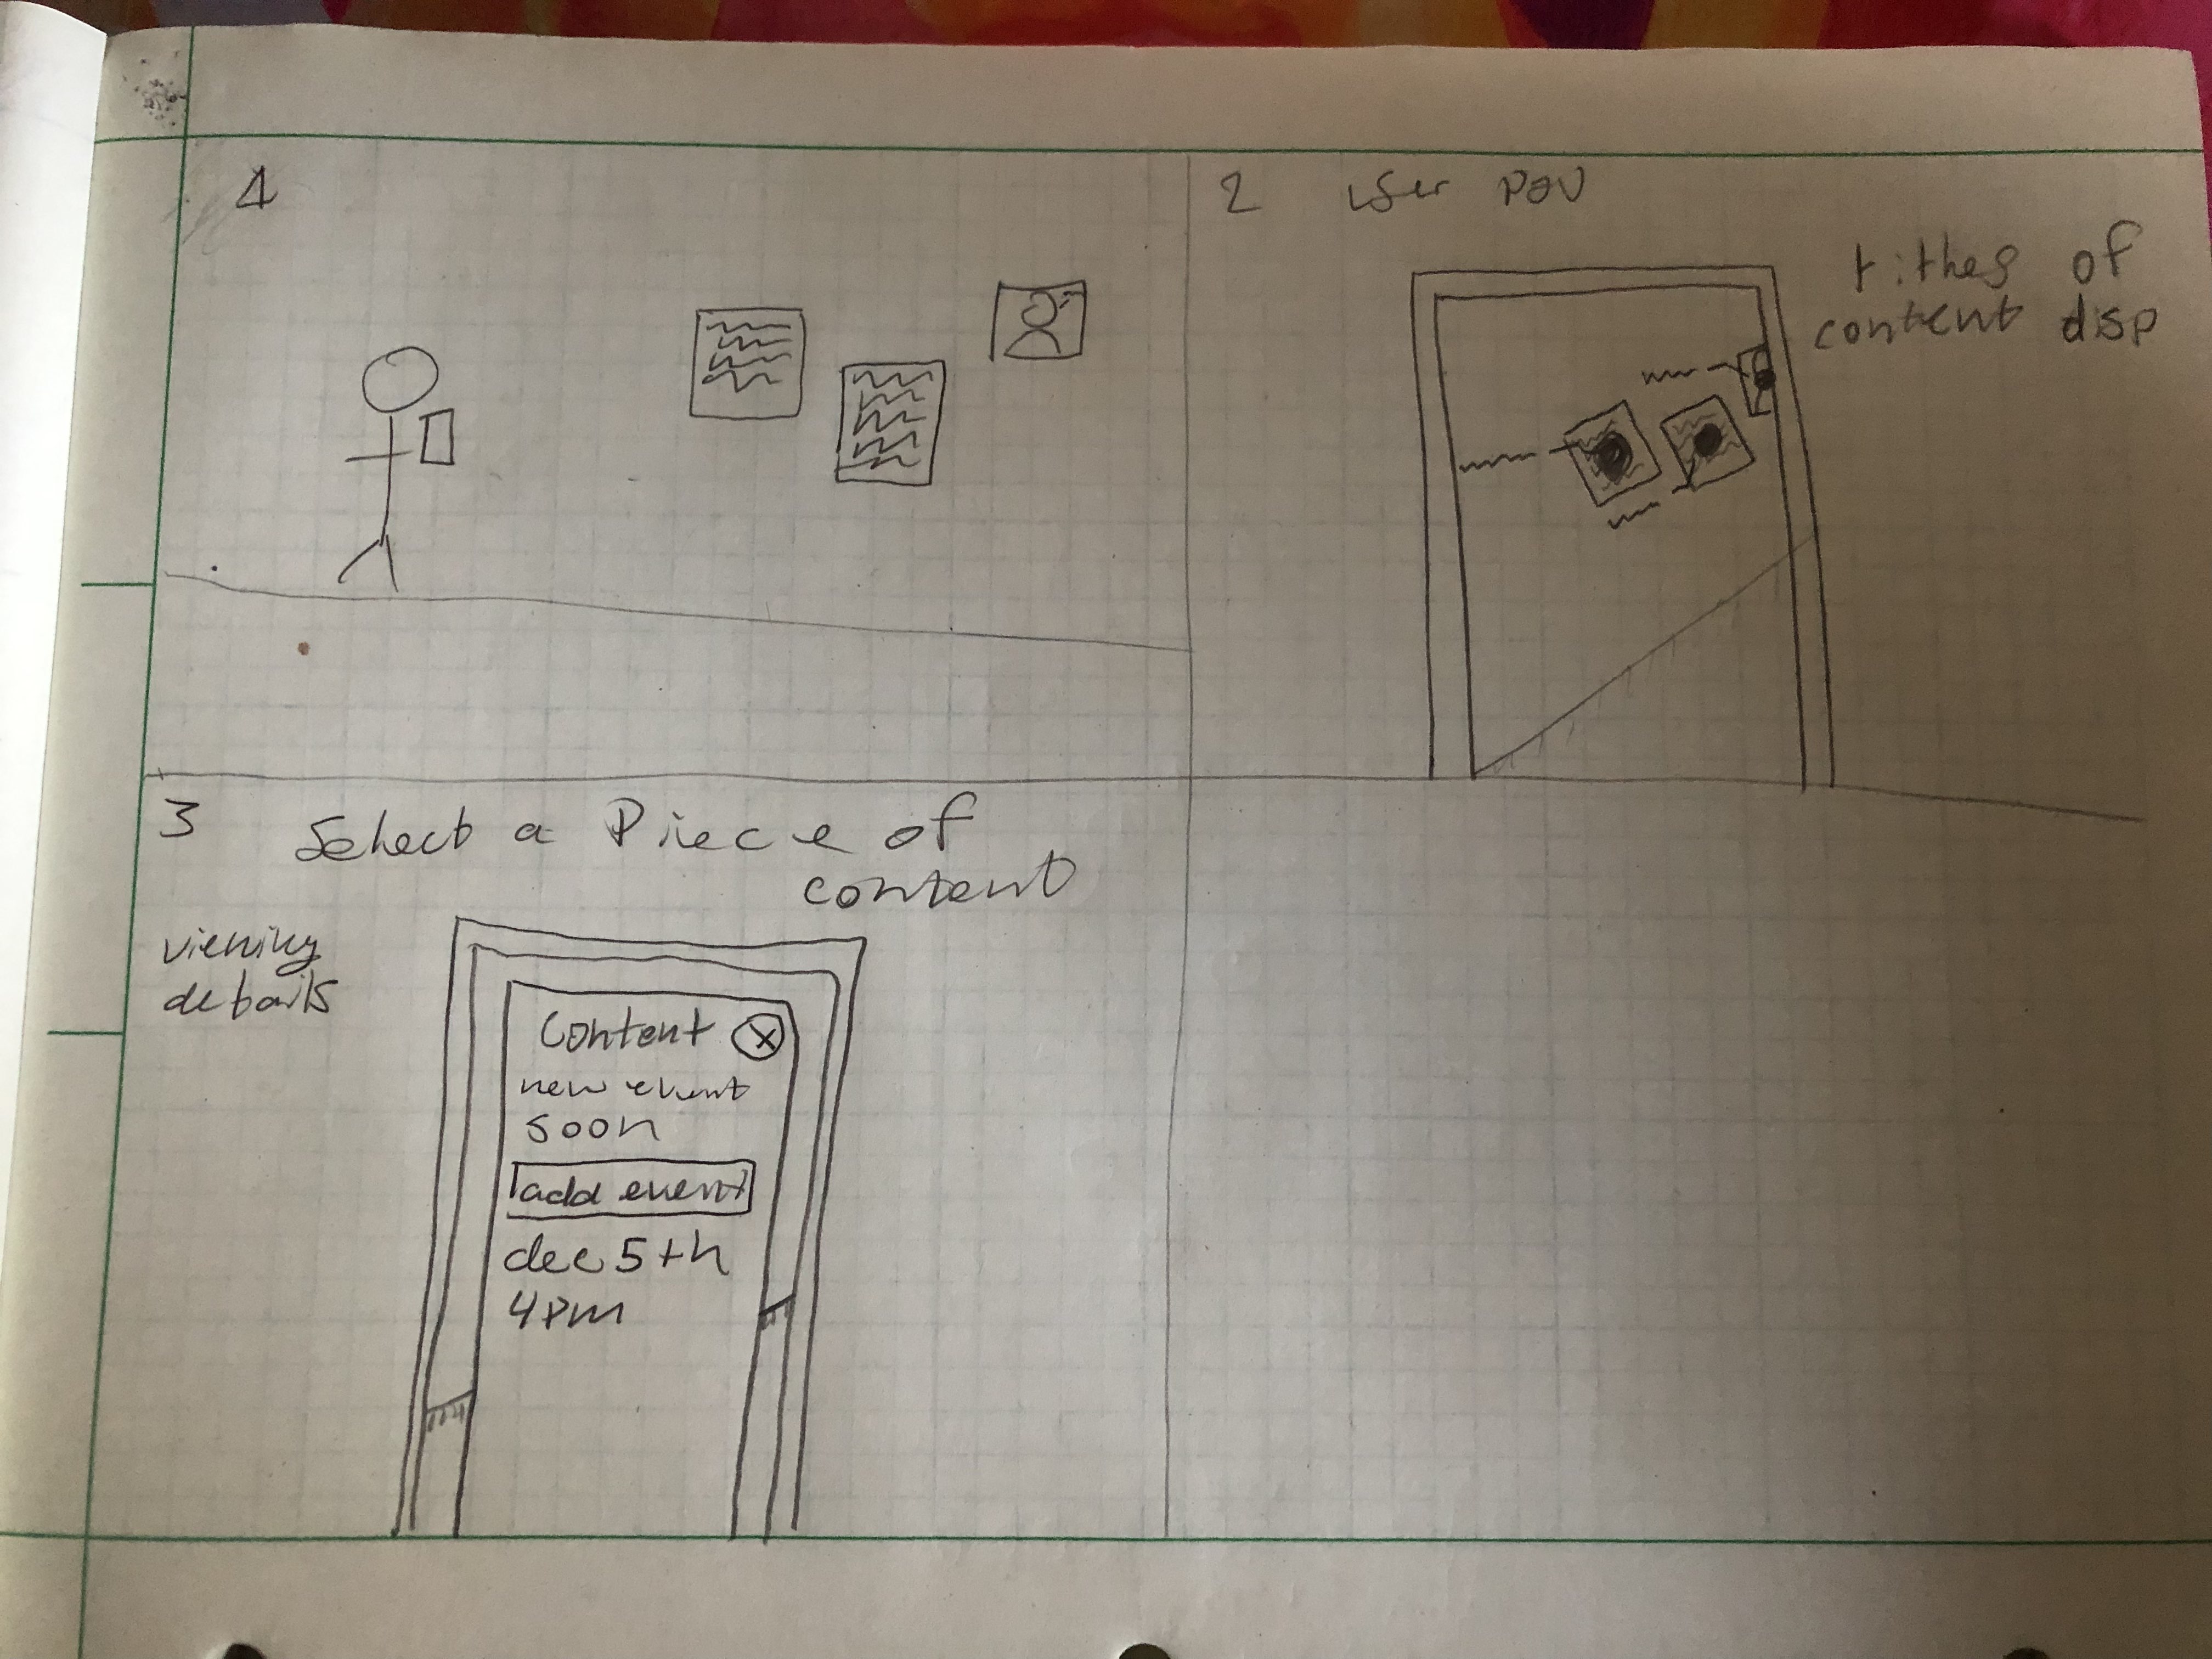 1
2 user POV
titles of
content disp
3 Select a Piece of
content
viewing
details
Content X
new event
soon
add event
dec 5th
4pm